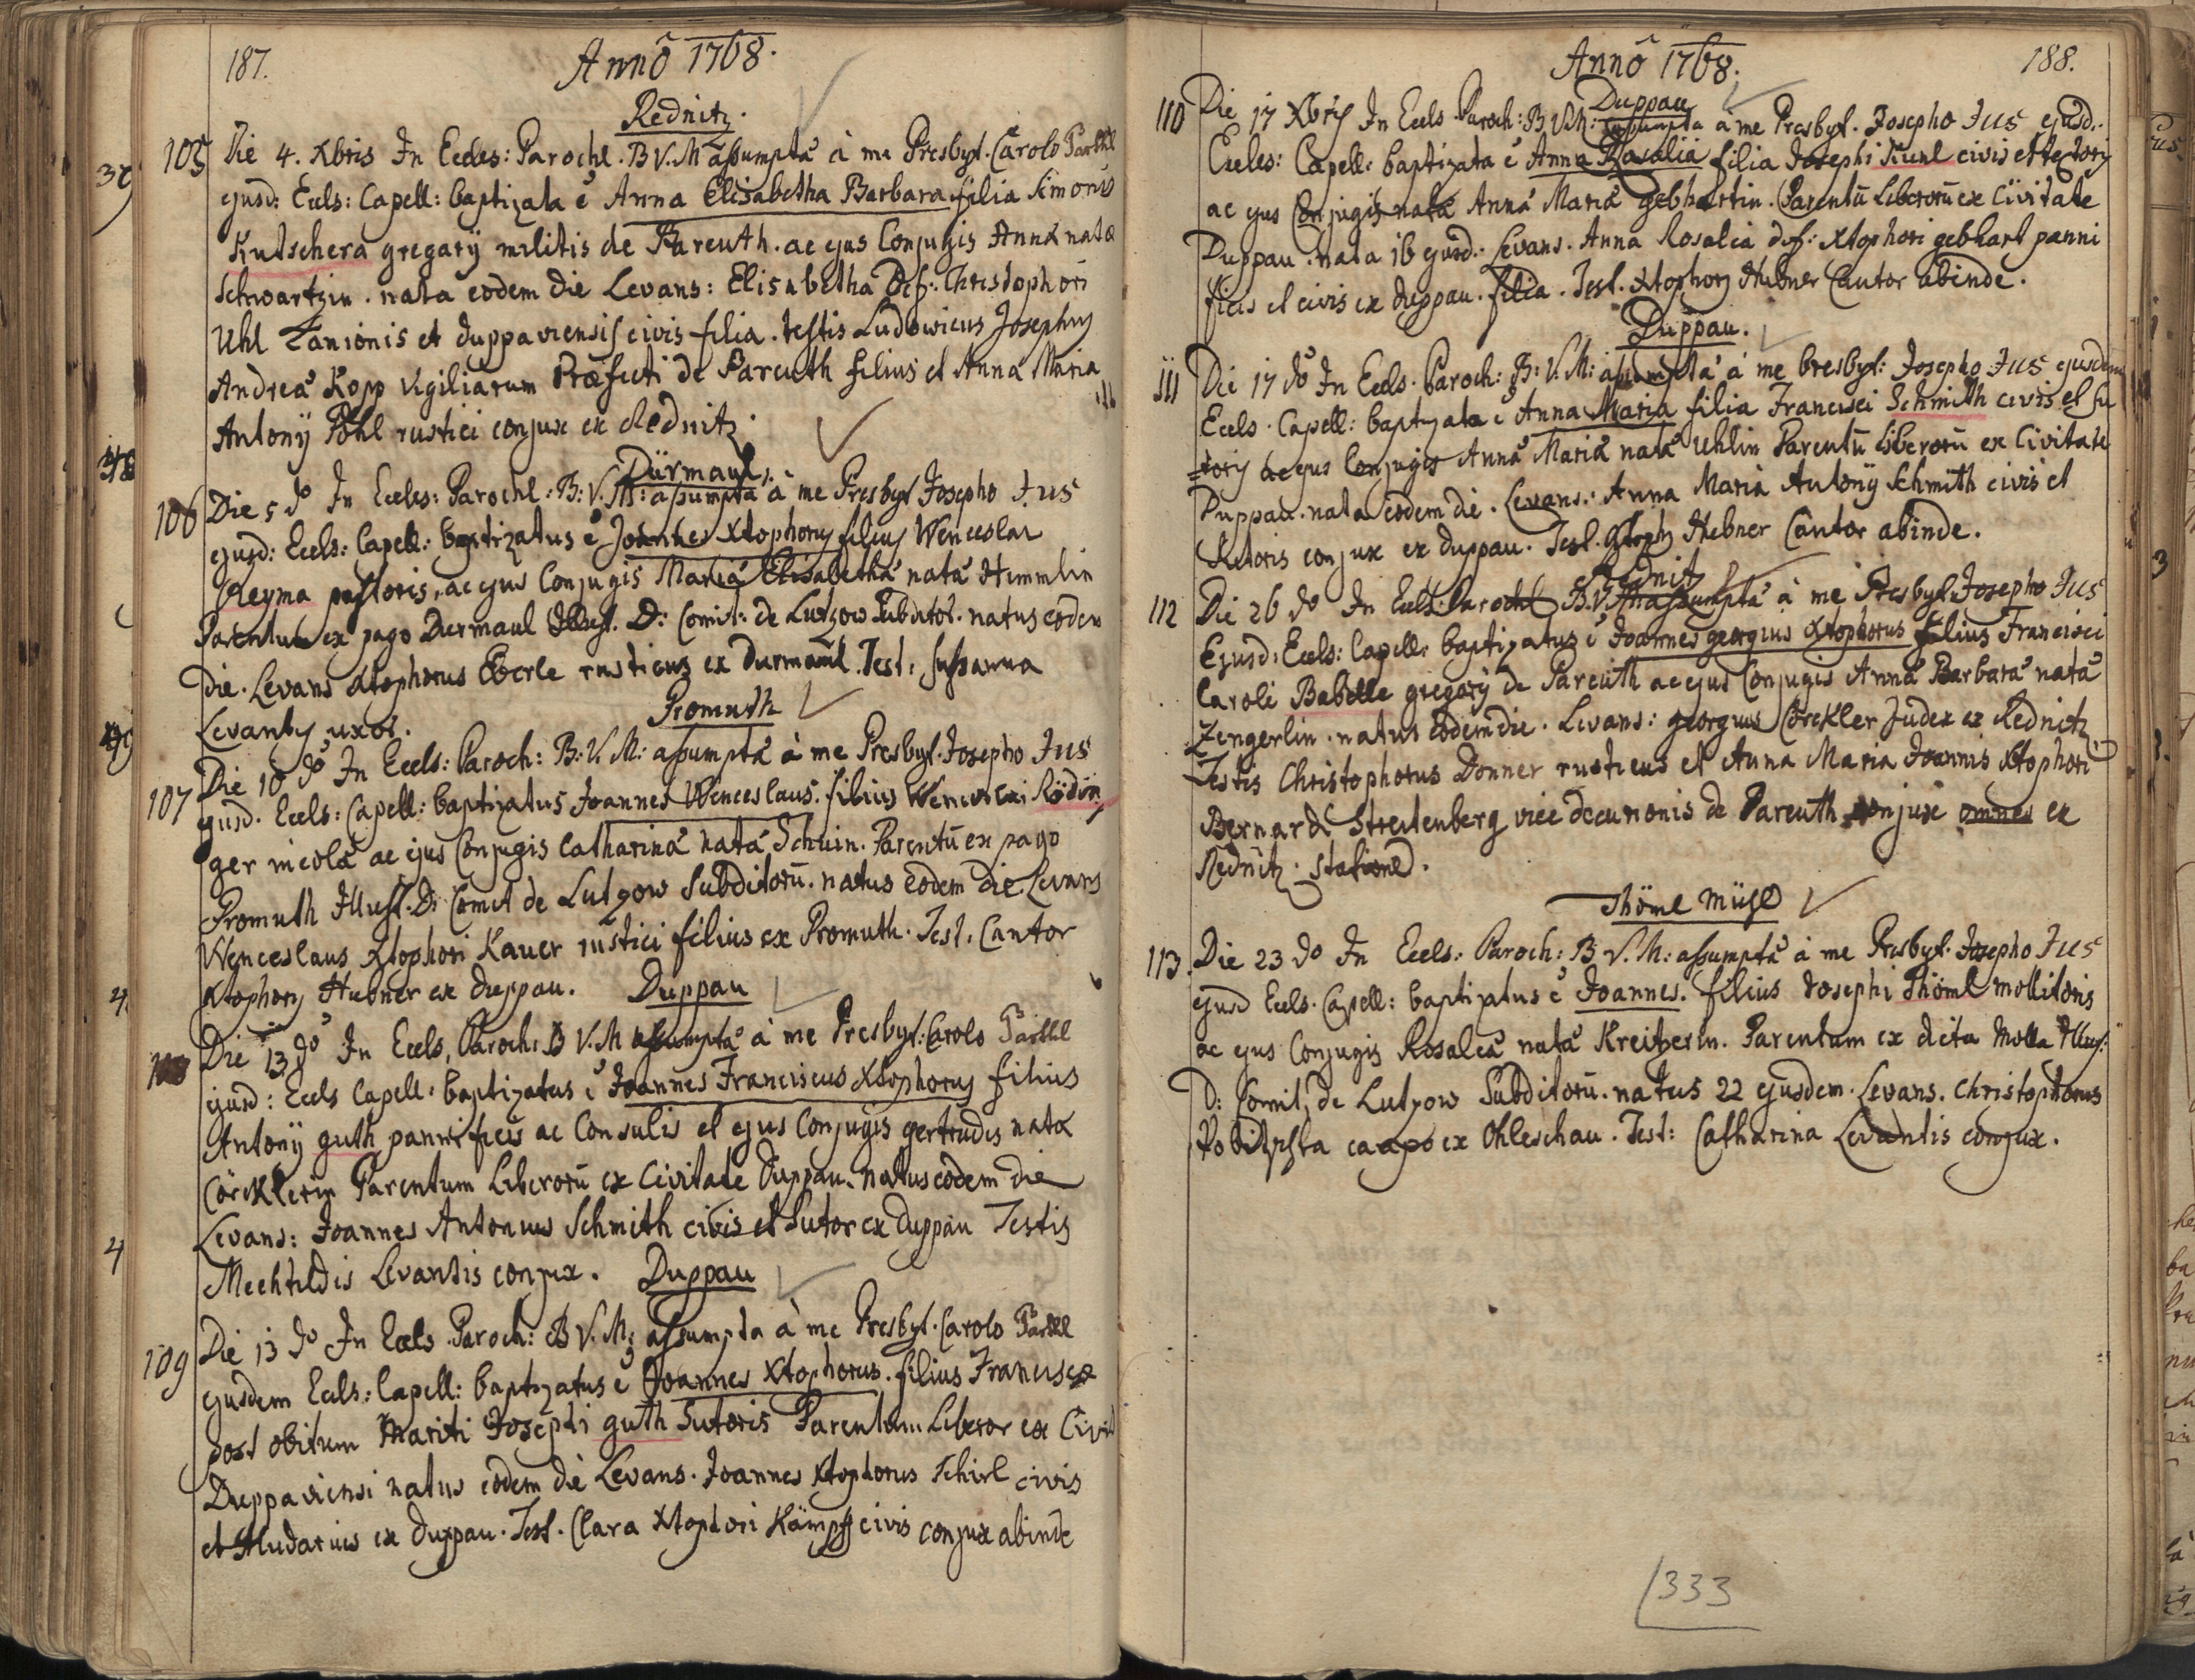 187.
Annô 1768.
Rednitz.
105 Die 4. Xbris In Eccles: Parochl. B V. M assumptâ à me Presbyt. Carolo Parthl
ejusd: Eccls: Capell: baptizata ê Anna Elisabetha Barbara filia Simonis
Kutschera gregarÿ militis de Pareuth. ac ejus Conjugis Annâ natâ
Schwartzin. nata eodem die Levans: Elisabetha Def: Christophori
Uhl Lanionis et duppaviensis civis filia. testis Ludowicus Josephus
Andreâ Kopp Vigiliarum Præfecti de Pareuth filius et Anna Maria
Antonÿ Pöhl rustici conjux ex Rednitz.
Dürmaul.
106 Die 5 do In Eccles: Parochl: B: V. M: assumptâ à me Presbyt Josepho Jus
ejusd: Eccls: Capell: baptizatus ê Joannes Xtophorus filius Wenceslai
Reyma pastoris, ac ejus Conjugis Mariâ Elisabethâ natâ Himmlin
Parentum ex pago Durmaul Illust. D: Comit: de Lutzow Subditor. natus eodem
die. Levans Xtophorus Eberle rusticus ex Durmaul. Test: Sussanna
Levantis uxor.
Promuth
107 Die 10 do In Eccls: Paroch: B: V. M: assumptâ à me Presbyt. Josepho Jus
ejusd. Eccls: Capell: baptizatus Joannes Wenceslaus. filius Wenceslai Rödin
ger incola ac ejus Conjugis Catharinâ natâ Schuin. Parentū ex pago
Promuth Illust. D: Comit de Lutzow Subditorū. natus eodem die Levans
Wenceslaus Xtophori Kauer rustici filius ex Promuth. Test. Cantor
Xtophorus Hubner ex Duppau.
Duppau
108 Die 13 do In Eccls, Paroch: B V. M assumptâ à me Presbyt: Carolo Parthl
ejusd: Eccls Capell: baptizatus ê Joannes Franciscus Xtophorus filius
Antonÿ guth pannificis ac Consulis et ejus Conjugis gertrudis nata
Cörcklerin Parentum Liberorū ex Civitate Duppau. natus eodem die
Levans: Joannes Antonius Schmith civis et Sutor ex Duppau Testis
Mechtildis Levantis conjux.
Duppau
109 Die 13 do In Eccls Paroch: B V. M: assumpta à me Presbyt. Carolo Parthl
ejusdem Eccls: Capell: baptizatus ê Joannes Xtophorus. filius Franciscæ
post obitum Mariti Josephi guth Sutoris Parentum Liberor ex Civit
Duppaviensi natus eodem die Levans. Joannes Xtophorus Schirl civis
et Aludarius ex Duppau. Test. Clara Xtophori Kämpff civis conjux abinde
Annô 1768.
188.
Duppau
110 Die 17 Xbris In Eccls Paroch: B V. M: assumpta à me Presbyt. Josepho Jus ejusd:
Eccles: Capell: baptizata ê Anna Rosalia filia Josephi Kunl civis et textoris
ac ejus Conjugis natâ Annâ Mariâ gebhartin. Parentū Liberorū ex Civitate
Duppau. nata 16 ejusd: Levans. Anna Rosalia def: Xtophori gebhart panni
ficis et civis ex duppau. filia. Test. Xtophorus Hubner Cantor abinde.
Duppau.
111 Die 17 do In Eccls. Paroch: B: V. M: assumptâ à me Presbyt: Josepho Jus ejusdem
Eccls. Capell: baptizata ê Anna Maria filia Francisci Schmith civis et su
toris ac ejus Conjugis Annâ Mariâ natâ Uhlin Parentū Liberorū ex Civitate
Duppau. nata eodem die. Levans: Anna Maria Antonÿ Schmith civis et
Sutoris conjux ex duppau. Test. Xtoph Hubner Cantor abinde.
Rednitz
112 Die 26 do In Eccls: Parochl B. V. M assumptâ à me Presbyt Josepho Jus
Ejusd: Eccls: Capell: baptizatus ê Joannes georgius Xtophorus filius Francisci
Caroli Babelle gregarÿ de Pareuth ac ejus Conjugis Annâ Barbarâ natâ
Zengerlin. natus eodem die. Levans: georgius Cörckler Judex ex Rednitz
Testis Christophorus Donner rusticus et Anna Maria Joannis Xtophori
Bernardi Streitenberg vice decurionis de Pareuth conjux omnes ex
Rednitz. stationed.
Thöml Mühl
113. Die 23 do In Eccls: Paroch: B V. M: assumptâ à me Presbyt. Josepho Jus
ejusd Eccls. Capell: baptizatus ê Joannes. filius Josephi Thöml mollitoris
ac ejus Conjugis Rosaleâ natâ Kreitzerin. Parentum ex dicta Molla Illus:
D: Comit, de Lutzow Subditorū. natus 22 ejusdem. Levans. Christophorus
ex Ohleschau. Test: Catharina Levantis conjux.
333